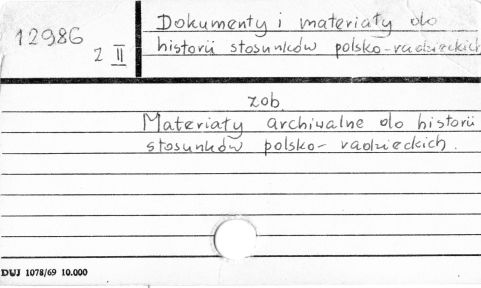 12986
z II
Dokumenty i materiały do
historii stosunków polsko-radzieckich
zob.
Materiały archiwalne do historii
stosunków polsko-radzieckich.
DUJ 1078/69 10.000